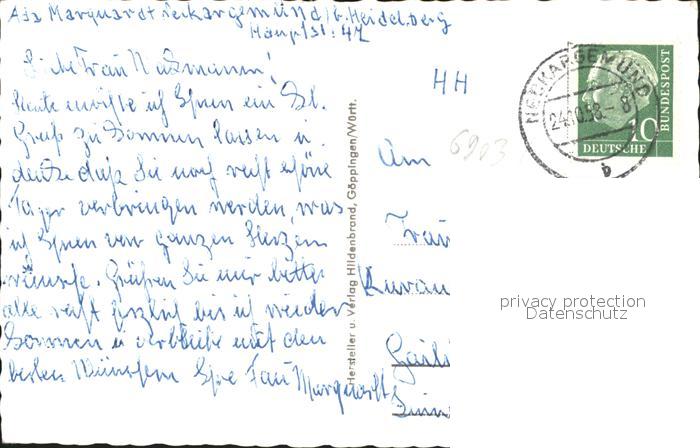 Ada Marquardt Neckargemünd/b. Heidelberg
Hauptst. 47
Liebe Frau Nußmann!
heute möchte ich Ihnen ein Bl.
Gruß zukommen lassen u.
denke daß Sie noch recht schöne
Tage verbringen werden, was
ich Ihnen von ganzen Herzen
wünsche. Grüßen Sie mir bitte
alle recht herzlich bis ich wieder
komme u verbleibe mit den
besten Wünschen Ihre Frau Marquardt
HH
6903
An
Frau
Kuran
Gail
Hersteller u. Verlag Hildenbrand, Göppingen/Württ.
NECKARGEMÜND
24.10.58 - 8
b
10
DEUTSCHE
BUNDESPOST
privacy protection
Datenschutz